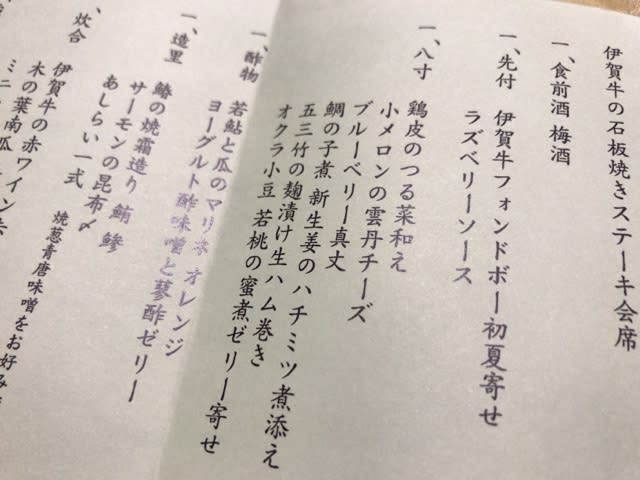 伊賀牛の石板焼きステーキ会席
一、食前酒 梅酒
一、先付 伊賀牛フォンドボー初夏寄せ
ラズベリーソース
一、八寸
鶏皮のつる菜和え
小メロンの雲丹チーズ
ブルーベリー真丈
鯛の子煮 新生姜のハチミツ煮添え
五三竹の麹漬け生ハム巻き
オクラ小豆 若桃の蜜煮ゼリー寄せ
一、酢物
若鮎と瓜のマリネ オレンジ
ヨーグルト酢味噌と蓼酢ゼリー
一、造里
鰆の焼霜造り 鮪 鯵
サーモンの昆布〆
あしらい一式
、炊合
伊賀牛の赤ワイン
焼葱青唐味噌をお好み
木の葉南瓜
ミニ